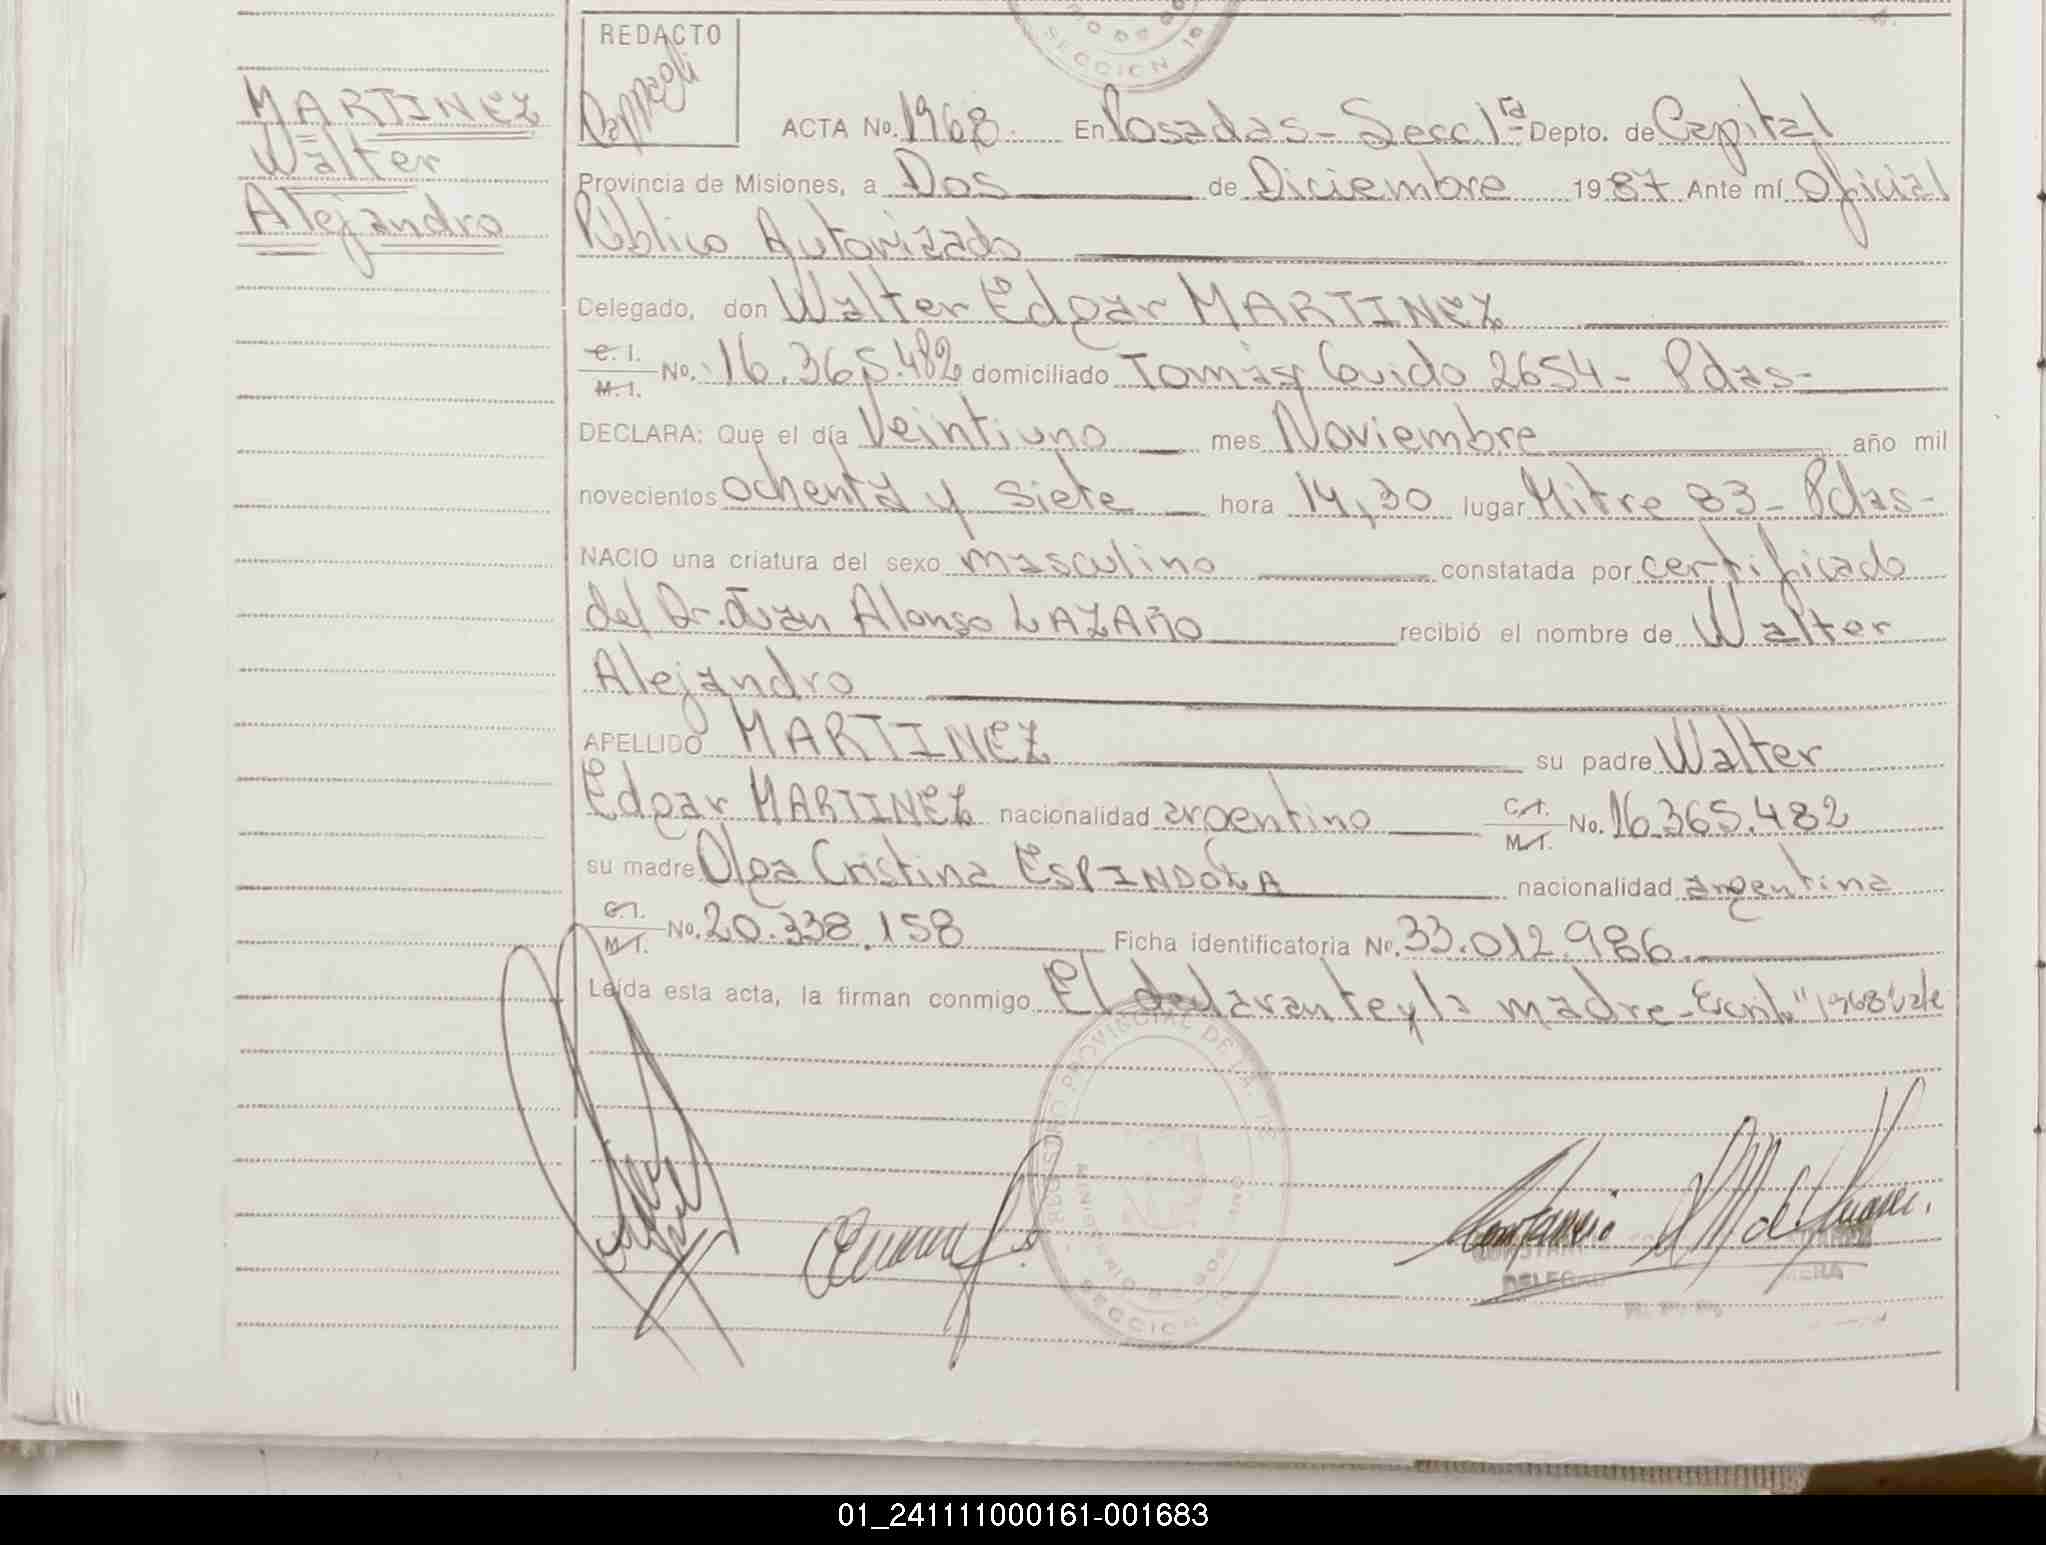 REDACTO
SECCION 1a
MARTINEZ
Walter
Alejandro
ACTA No. 1968 En Posadas - Secc. 1ra Depto. de Capital
Provincia de Misiones, a Dos de Diciembre 1987 Ante mí Oficial
Público Autorizado
Delegado, don Walter Edgar MARTINEZ
C. I. M. I. No. 16.365.482 domiciliado Tomás Guido 2654 - Pdas -
DECLARA: Que el día Veintiuno mes Noviembre año mil
novecientos ochenta y siete hora 14,30 lugar Mitre 83 - Pdas -
NACIO una criatura del sexo masculino constatada por certificado
del Dr. Juan Alonso LAZAÑO recibió el nombre de Walter
Alejandro
APELLIDO MARTINEZ su padre Walter
Edgar MARTINEZ nacionalidad argentino C.I. M.I. No. 16.365.482
su madre Olga Cristina ESPINDOLA nacionalidad argentina
C.I. M.I. No. 20.338.158 Ficha identificatoria No. 33.012.986.
Leída esta acta, la firman conmigo El declarante y la madre - Escrit. "1968" vale
REGISTRO PROVINCIAL DE LA
MINISTERIO
SECCION
DELEGADA
01_241111000161-001683